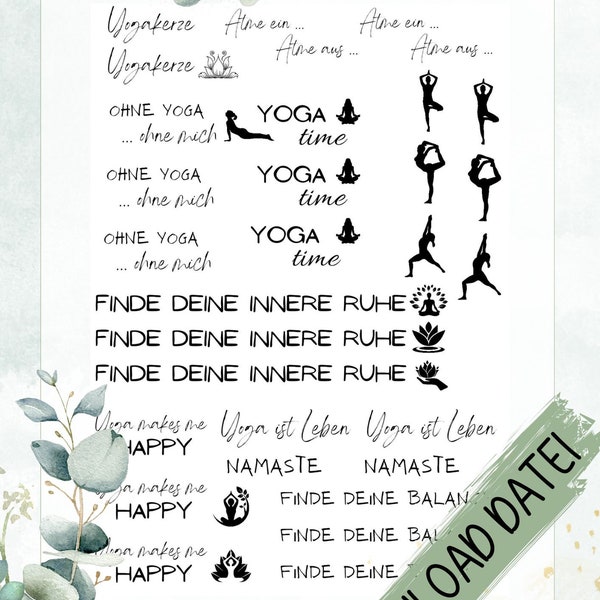 Yogakerze
Atme ein ... Atme ein ...
Atme aus ... Atme aus ...
Yogakerze
OHNE YOGA
... ohne mich
YOGA
time
OHNE YOGA
... ohne mich
YOGA
time
OHNE YOGA
... ohne mich
YOGA
time
FINDE DEINE INNERE RUHE
FINDE DEINE INNERE RUHE
FINDE DEINE INNERE RUHE
Yoga makes me
HAPPY
Yoga ist Leben Yoga ist Leben
NAMASTE NAMASTE
Yoga makes me
HAPPY
FINDE DEINE BALAN
FINDE DEINE BAL
Yoga makes me
HAPPY
FINDE DEINE
NLOAD DATEI